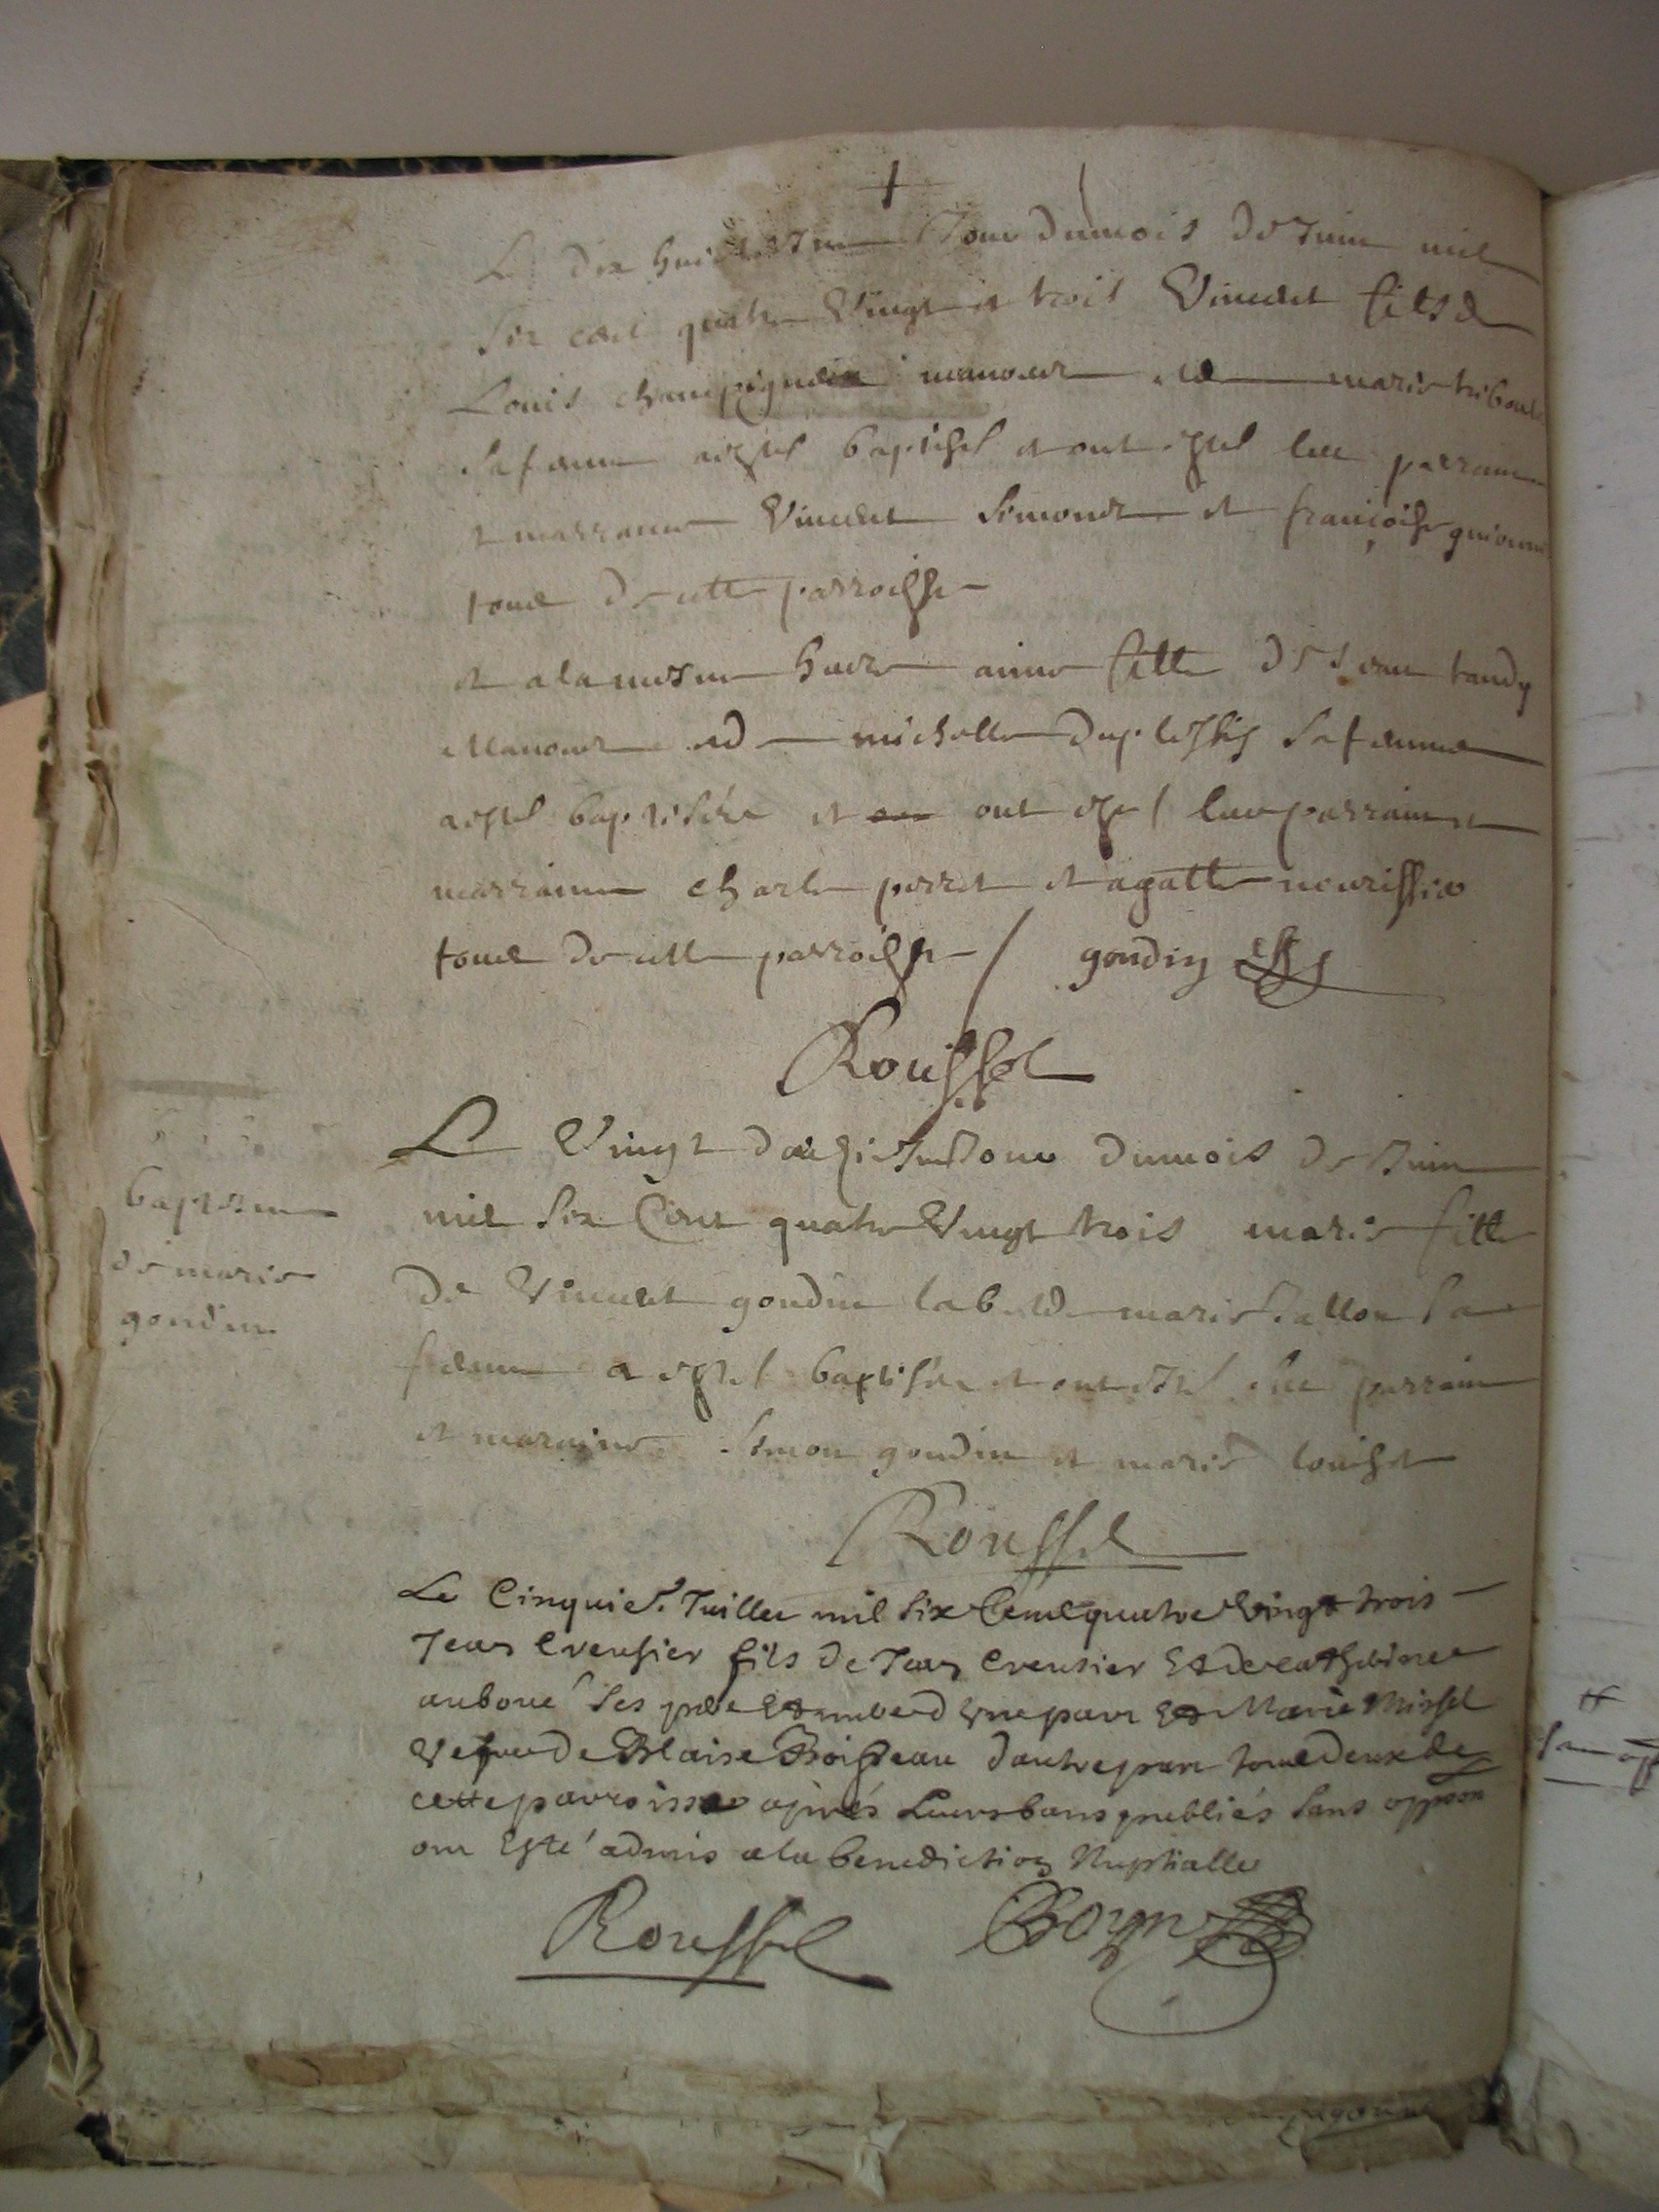 Le dix huictiesme Jour du mois de Juin mil
Six cent quatre Vingt et trois Vincent fils de
Louis champignon manoeur et de marie triboul
Sa femme a esté baptisé et ont esté leu parrain
et marraine Vincent Simonet et françoise
tout de cette parroisse
et a la mesme heure anne fille de Jean tandy
Manoeur et de michelle duplessis Sa femme
a esté baptisée et ont esté leur parrain et
marraine charle perret et agatte nourissier
tout de cette parroisse goudin
Roussel
Le Vingt deuxiesme Jour du mois de Juin
mil Six Cent quatre Vingt trois marie fille
baptesme
de marie
goudin
de Vincent goudin lab et de marie Sallon Sa
femme a esté baptisée et ont esté leu parrain
et maraine Simon goudin et marie louiset
Roussel
Le Cinquie. Juillet mil Six Cent quatre Vingt trois
Jean Creusier fils de Jean Creusier Et de catherinne
auboué Ses pere Et mere d'Une part Et Marie Missel
Vefve de Blaise Boisseau d'autre part tout deux de
cette parroisse après Leurs bans publiés Sans oppon
ont Esté admis a la benediction Nuptialle
Roussel